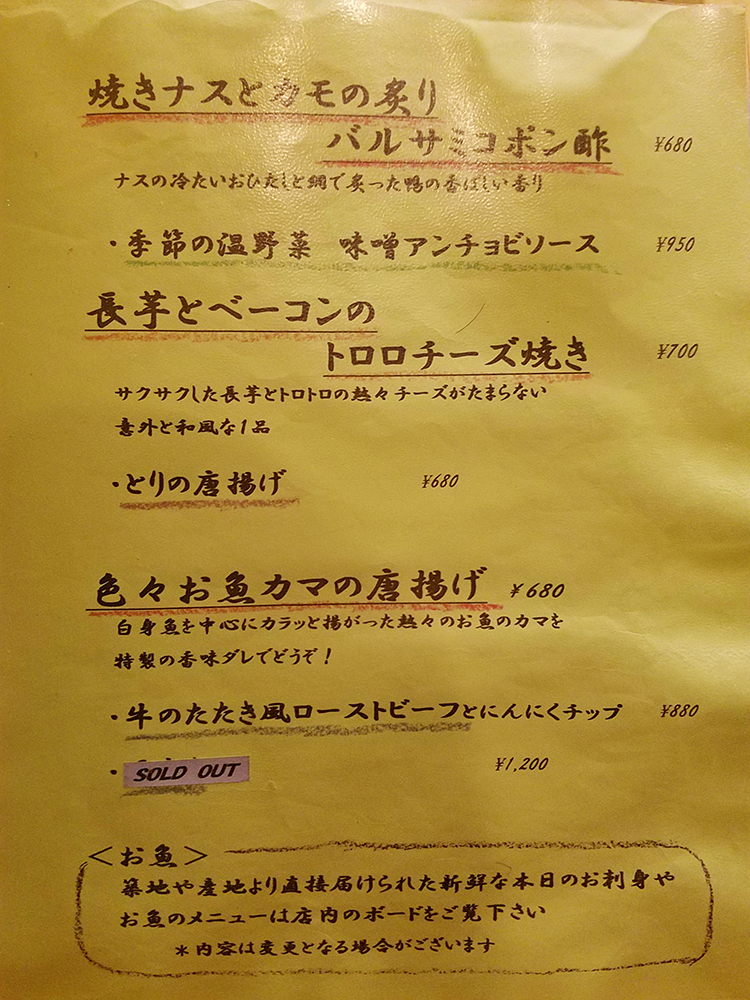 焼きナスとカモの炙り
バルサミコポン酢 ¥680
ナスの冷たいおひたしと網で炙った鴨の香ばしい香り
・季節の温野菜 味噌アンチョビソース ¥950
長芋とベーコンの
トロロチーズ焼き ¥700
サクサクした長芋とトロトロの熱々チーズがたまらない
意外と和風な1品
・とりの唐揚げ ¥680
色々お魚カマの唐揚げ ¥680
白身魚を中心にカラッと揚がった熱々のお魚のカマを
特製の香味ダレでどうぞ！
・牛のたたき風ローストビーフとにんにくチップ ¥880
・SOLD OUT ¥1,200
＜お魚＞
築地や産地より直接届けられた新鮮な本日のお刺身や
お魚のメニューは店内のボードをご覧下さい
＊内容は変更となる場合がございます